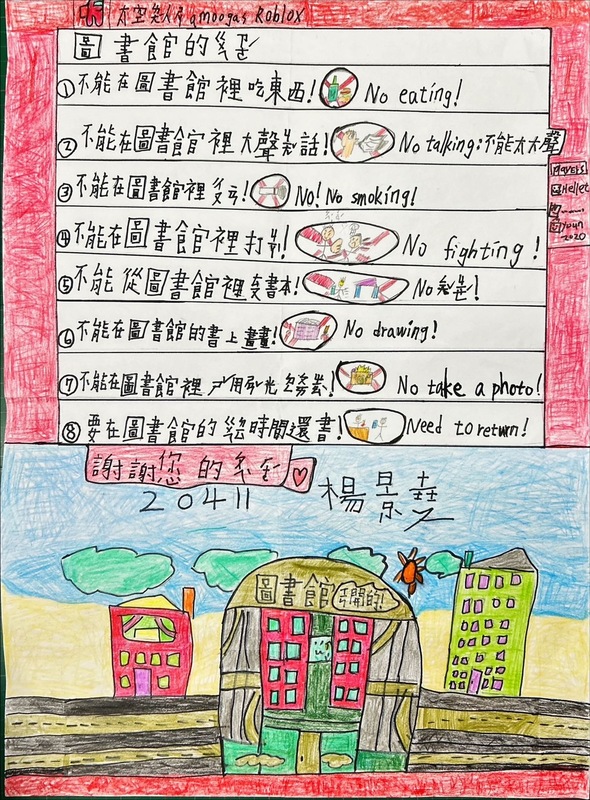 amoogas Roblox
圖書館的
①不能在圖書館裡吃東西! No eating!
②不能在圖書館裡大聲說話! No talking:不能太大聲
③不能在圖書館裡 No! No smoking!
④不能在圖書館裡打 No fighting!
⑤不能從圖書館裡 書本! No
⑥不能在圖書館的書上畫畫! No drawing!
⑦不能在圖書館裡 用 光 No take a photo!
⑧要在圖書館的 時間還書! Need to return!
players
2020
謝謝您的
20411 楊景
圖書館 開的!